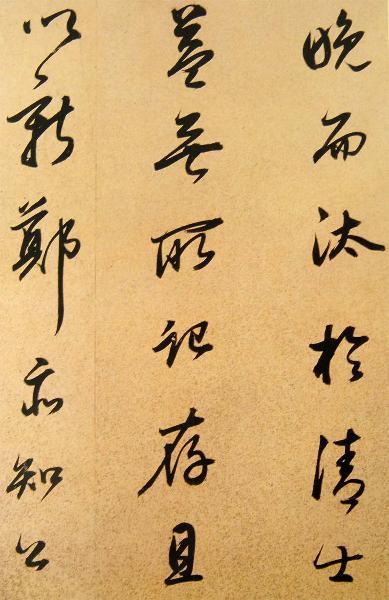 晚而汰於清士
益無所記存且
以新鄭亦知公